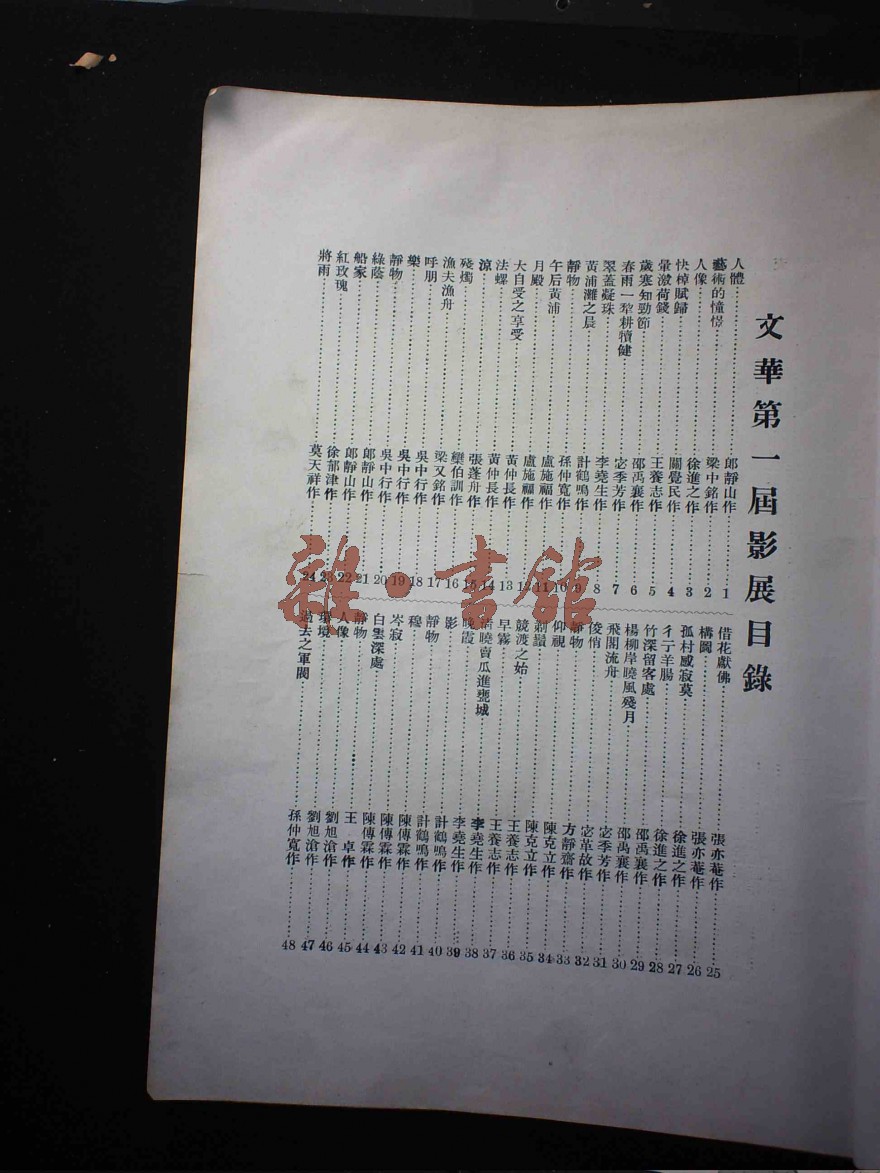 文華第一屆影展目錄
人體……郎靜山作……1
藝術的憧憬……梁中銘作……2
人像……徐進之作……3
快棹賦歸……關覺民作……4
暈激荷錢……王養志作……5
歲寒知勁節……邵禹襄作……6
春雨一犂耕犢健……宓季芳作……7
翠蓋凝珠……李堯生作……8
黃浦灘之晨……計鶴鳴作……9
靜物……孫仲寬作……10
午后黃浦……盧施福作……11
月殿……盧施福作……12
大自受之享受……黃仲長作……13
法螺……黃仲長作……14
涼……張蓬舟作……15
殘燭……欒伯訓作……16
漁夫漁舟……梁又銘作……17
呼朋……吳中行作……18
樂……吳中行作……19
靜物……吳中行作……20
綠蔭……郎靜山作……21
船家……郎靜山作……22
紅玫瑰……徐郙津作……23
將雨……莫天祥作……24
借花獻佛……張亦菴作……25
構圖……張亦菴作……26
孤村感寂莫……徐進之作……27
彳亍羊腸……徐進之作……28
竹深留客處……邵禹襄作……29
楊柳岸曉風殘月……邵禹襄作……30
飛閣流舟……宓季芳作……31
俊悄……宓革故作……32
靜物……方靜齋作……33
仰視……陳克立作……34
……陳克立作……35
競渡之始……王養志作……36
早霧……王養志作……37
清曉賣瓜進甕城……李堯生作……38
晚霞……李堯生作……39
影……計鶴鳴作……40
靜物……計鶴鳴作……41
穆……陳傳霖作……42
岑寂……陳傳霖作……43
白雲深處……陳傳霖作……44
靜物……王 卓作……45
人像……劉旭滄作……46
……劉旭滄作……47
過去之軍閥……孫仲寬作……48
雜·書館